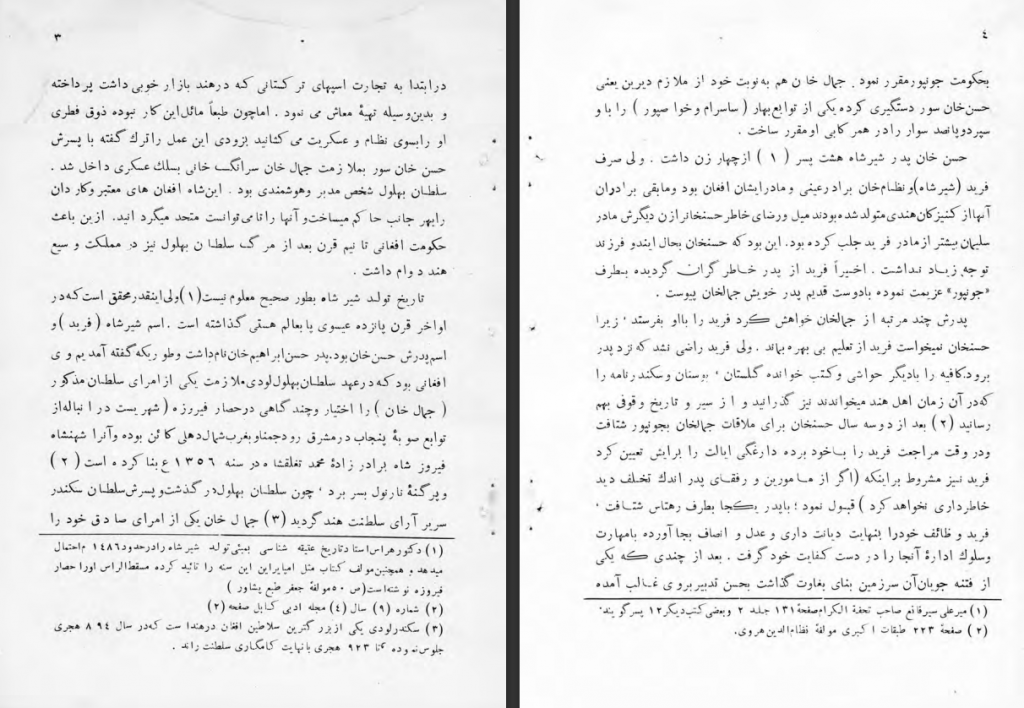 ۳
در ابتدا به تجارت اسپهای تر کستانی که در هند بازار خوبی داشت پرداخته
و بدین وسیله تهیهٔ معاش می نمود . اما چون طبعاً مائل این کار نبوده ذوق فطری
او را بسوی نظام و عسکریت می کشانید بزودی این عمل را ترك گفته با پسرش
حسن خان سور بملا زمت جمال خان سرانگ خانی بسلك عسکری داخل شد .
سلطان بهلول شخص مدبر وهوشمندی بود . این شاه افغان های معتبر و کار دان
را بهر جانب حا کم میساخت و آنها را تا می توانست متحد میگردا نید. ازین باعث
حکومت افغانی تا نیم قرن بعد از مر گ سلطا ن بهلول نیز در مملکت و سیع
هند دوام داشت .
تاریخ تولد شیر شاه بطور صحیح معلوم نیست (۱) ولی اینقدر محقق است که در
اواخر قرن پانزده عیسوی پا بعالم هستی گذاشته است . اسم شیرشاه ( فرید ) و
اسم پدرش حسن خان بود. پدر حسن ابراهیم خان نام داشت و طو ریکه گفته آمدیم و ی
افغانی بود که در عهد سلطان بهلول لودی ملازمت یکی از امرای سلطان مذکور
( جمال خان ) را اختیار و چند گاهی در حصار فیروزه ( شهر یست در ا نباله از
توابع صوبهٔ پنجاب در مشرق رود جمنا و بغرب شمال دهلی کا ئن بوده و آنرا شهنشاه
فیروز شاه برادر زادهٔ محمد تغلقشاه در سنه ۱۳۵٦ ع بنا کرده است ( ۲ )
و پر گنهٔ نارنول بسر برد ، چون سلطان بهلول در گذشت و پسرش سلطان سکندر
سریر آرای سلطنت هند گردید (۳) جمال خان یکی از امرای صادق خود را
(۱) دکتور هراس استاد تاریخ عتیقه شناسی بمبئی تولد شیر شاه را در حدود ۱٤۸٦ م احتمال
میدهد و همچنین مولف کتاب مثل امیا براین این سنه را تائید کرده مسقط الراس او را حصار
فیروزه نوشته است (ص ۵۰ مولفهٔ جعفر طبع پشاور )
(۲) شماره (۹) سال (٤) مجله ادبی کابل صفحه (۲)
(۳) سکندر لودی یکی از بزر گترین سلاطین افغان در هند ا ست که در سال ٨٩٤ هجری
جلوس نموده تا ۹۲۳ هجری با نهایت کامگاری سلطنت راند .
٤
بحکومت جونپور مقرر نمود . جمال خان هم به نوبت خود از ملازم دیرین یعنی
حسن خان سور دستگیری کرده یکی از توابع بهار ( ساسرام و خوا صپور ) را با و
سپرد و پانصد سوار را در همر کابی او مقرر ساخت .
حسن خان پدر شیر شاه هشت پسر ( ۱ ) از چهار زن داشت . ولی صرف
فرید (شیر شاه) و نظام خان برادر عینی و مادر ایشان افغان بود و مابقی برادران
آنها از کنیزکان هندی متولد شده بودند میل و رضای خاطر حسنخان از زن دیگرش مادر
سلیمان بیشتر از مادر فر ید جلب کرده بود. این بود که حسنخان بحال ایندو فرزند
توجه زیاد نداشت . اخیراً فرید از پدر خاطر گران گردیده بطرف
«جونپور» عزیمت نموده با دوست قدیم پدر خویش جمالخان پیوست .
پدرش چند مرتبه از جمالخان خواهش کرد فرید را بااو بفرستد ، زیرا
حسنخان نمیخواست فرید از تعلیم بی بهره بماند . ولی فرید راضی نشد که نزد پدر
برود. کافیه را با دیگر حواشی و کتب خوانده گلستان ، بوستان و سکندر نامه را
که در آن زمان اهل هند میخواندند نیز گذرانید و ا ز سیر و تاریخ وقوفی بهم
رسانید (۲) بعد از دو سه سال حسنخان برای ملاقات جمالخان بجونپور شتافت
ودر وقت مراجعت فرید را باخود برده دارغگی ایالت را برایش تعیین کرد
فرید نیز مشروط براینکه ( اگر از مامورین و رفقای پدر اندك تخلف دید
خاطر داری نخواهد کرد ) قبول نمود ؛ با پدر یکجا بطرف رهتاس شتافت ،
فرید و ظائف خود را بنهایت دیانت داری و عدل و انصاف بجا آورده بامهارت
وسلوك ادارهٔ آنجا را در دست کفایت خود گرفت . بعد از چندی که یکی
از فتنه جویان آن سرزمین بنای بغاوت گذاشت بحسن تدبیر بروی غالب آمده
(۱) میر علی سیر قانع صاحب تحفة الکرام صفحهٔ ۱۳۱ جلد ۲ و بعضی کتب دیگر ۱۲ پسر گو یند .
(۲) صفحهٔ ۲۲۳ طبقات اکبری مولفهٔ نظام الدین هروی.